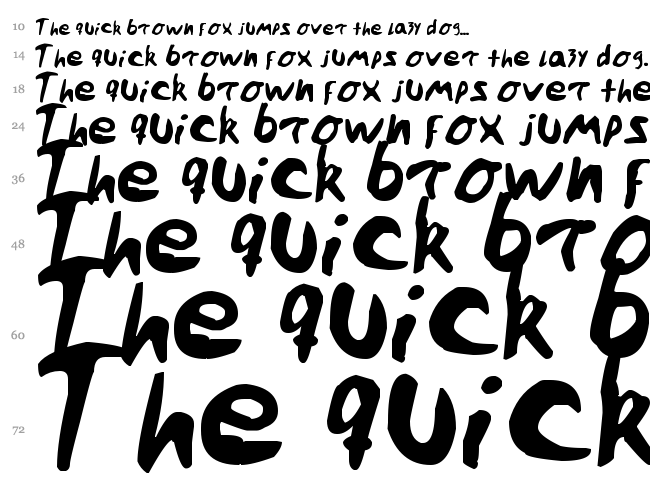 10 The quick brown fox jumps over the lazy dog...
14 The quick brown fox jumps over the lazy dog.
18 The quick brown fox jumps over the
24 The quick brown fox jumps
36 The quick brown f
48 The quick bro
60 The quick b
72 The quick